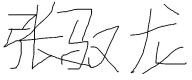 张驭龙